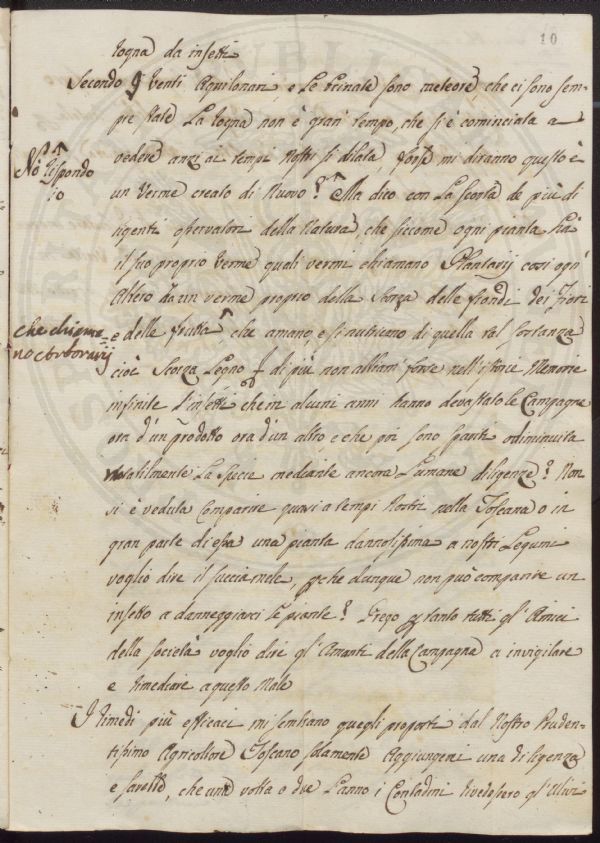 10
rogna da insetti
Secondo I Venti Aquilonari, e Le brinate sono meteore che ci sono sem-
pre state La rogna non è gran tempo, che si è cominciata a
vedere anzi ai tempi nostri si dilata, forse mi diranno questo è
No Rispondo
io
un verme creato di nuovo? Ma dico con La scorta de più di
ligenti osservatori della Natura che siccome ogni pianta hà
il suo proprio Verme quali vermi chiamano Plantarij così ogn'
Albero ha un verme proprio della Scorza delle frondi dei Fiori
che chiama=
no Arborarij
e delle frutta, che amano, e si nutricano di quella tal sostanza
cioè Scorza Legno di più non abbiam forse nell'istorie Memorie
infinite d'insetti che in alcuni anni hanno devastato le Campagne
ora d'un prodotto ora d'un altro, e che poi sono spariti o diminuita
notabilmente La specie mediante ancora L'umane diligenze? Non
si è veduta Comparire quasi a tempi nostri nella Toscana o in
gran parte di essa una pianta dannosissima a nostri Legumi
voglio dire il succiamele, pche dunque non può comparire un
insetto a danneggiarci le piante? Prego p tanto tutti gl'Amici
della società voglio dire gl'Amanti della Campagna a invigilare
e rimediare a questo Male
I rimedi più efficaci mi sembrano quegli proposti dal Nostro Pruden-
tissimo Agricoltore Toscano solamente Aggiungerei una diligenza
e sarebbe, che una volta o due L'anno i Contadini rivedessero gl'Ulivi